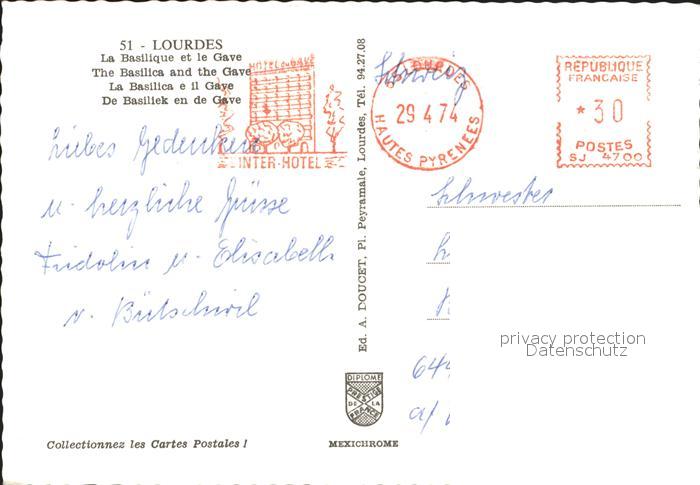 51 - LOURDES
La Basilique et le Gave
The Basilica and the Gave
La Basilica è il Gave
De Basiliek en de Gave
HOTEL DU GAVE
INTER-HOTEL
Liebes Gedenken
u. herzliche Grüsse
Fridolin u. Elisabeth
v. Bütschwil
Collectionnez les Cartes Postales !
Ed. A. DOUCET, Pl. Peyramale, Lourdes, Tél. 94.27.08
DIPLOME
PRESTIGE
DE LA
FRANCE
MEXICHROME
Schweiz
LOURDES
29 4 74
HAUTES PYRENEES
REPUBLIQUE
FRANCAISE
* 30
POSTES
SJ 4700
Schwester
644
a/
privacy protection
Datenschutz